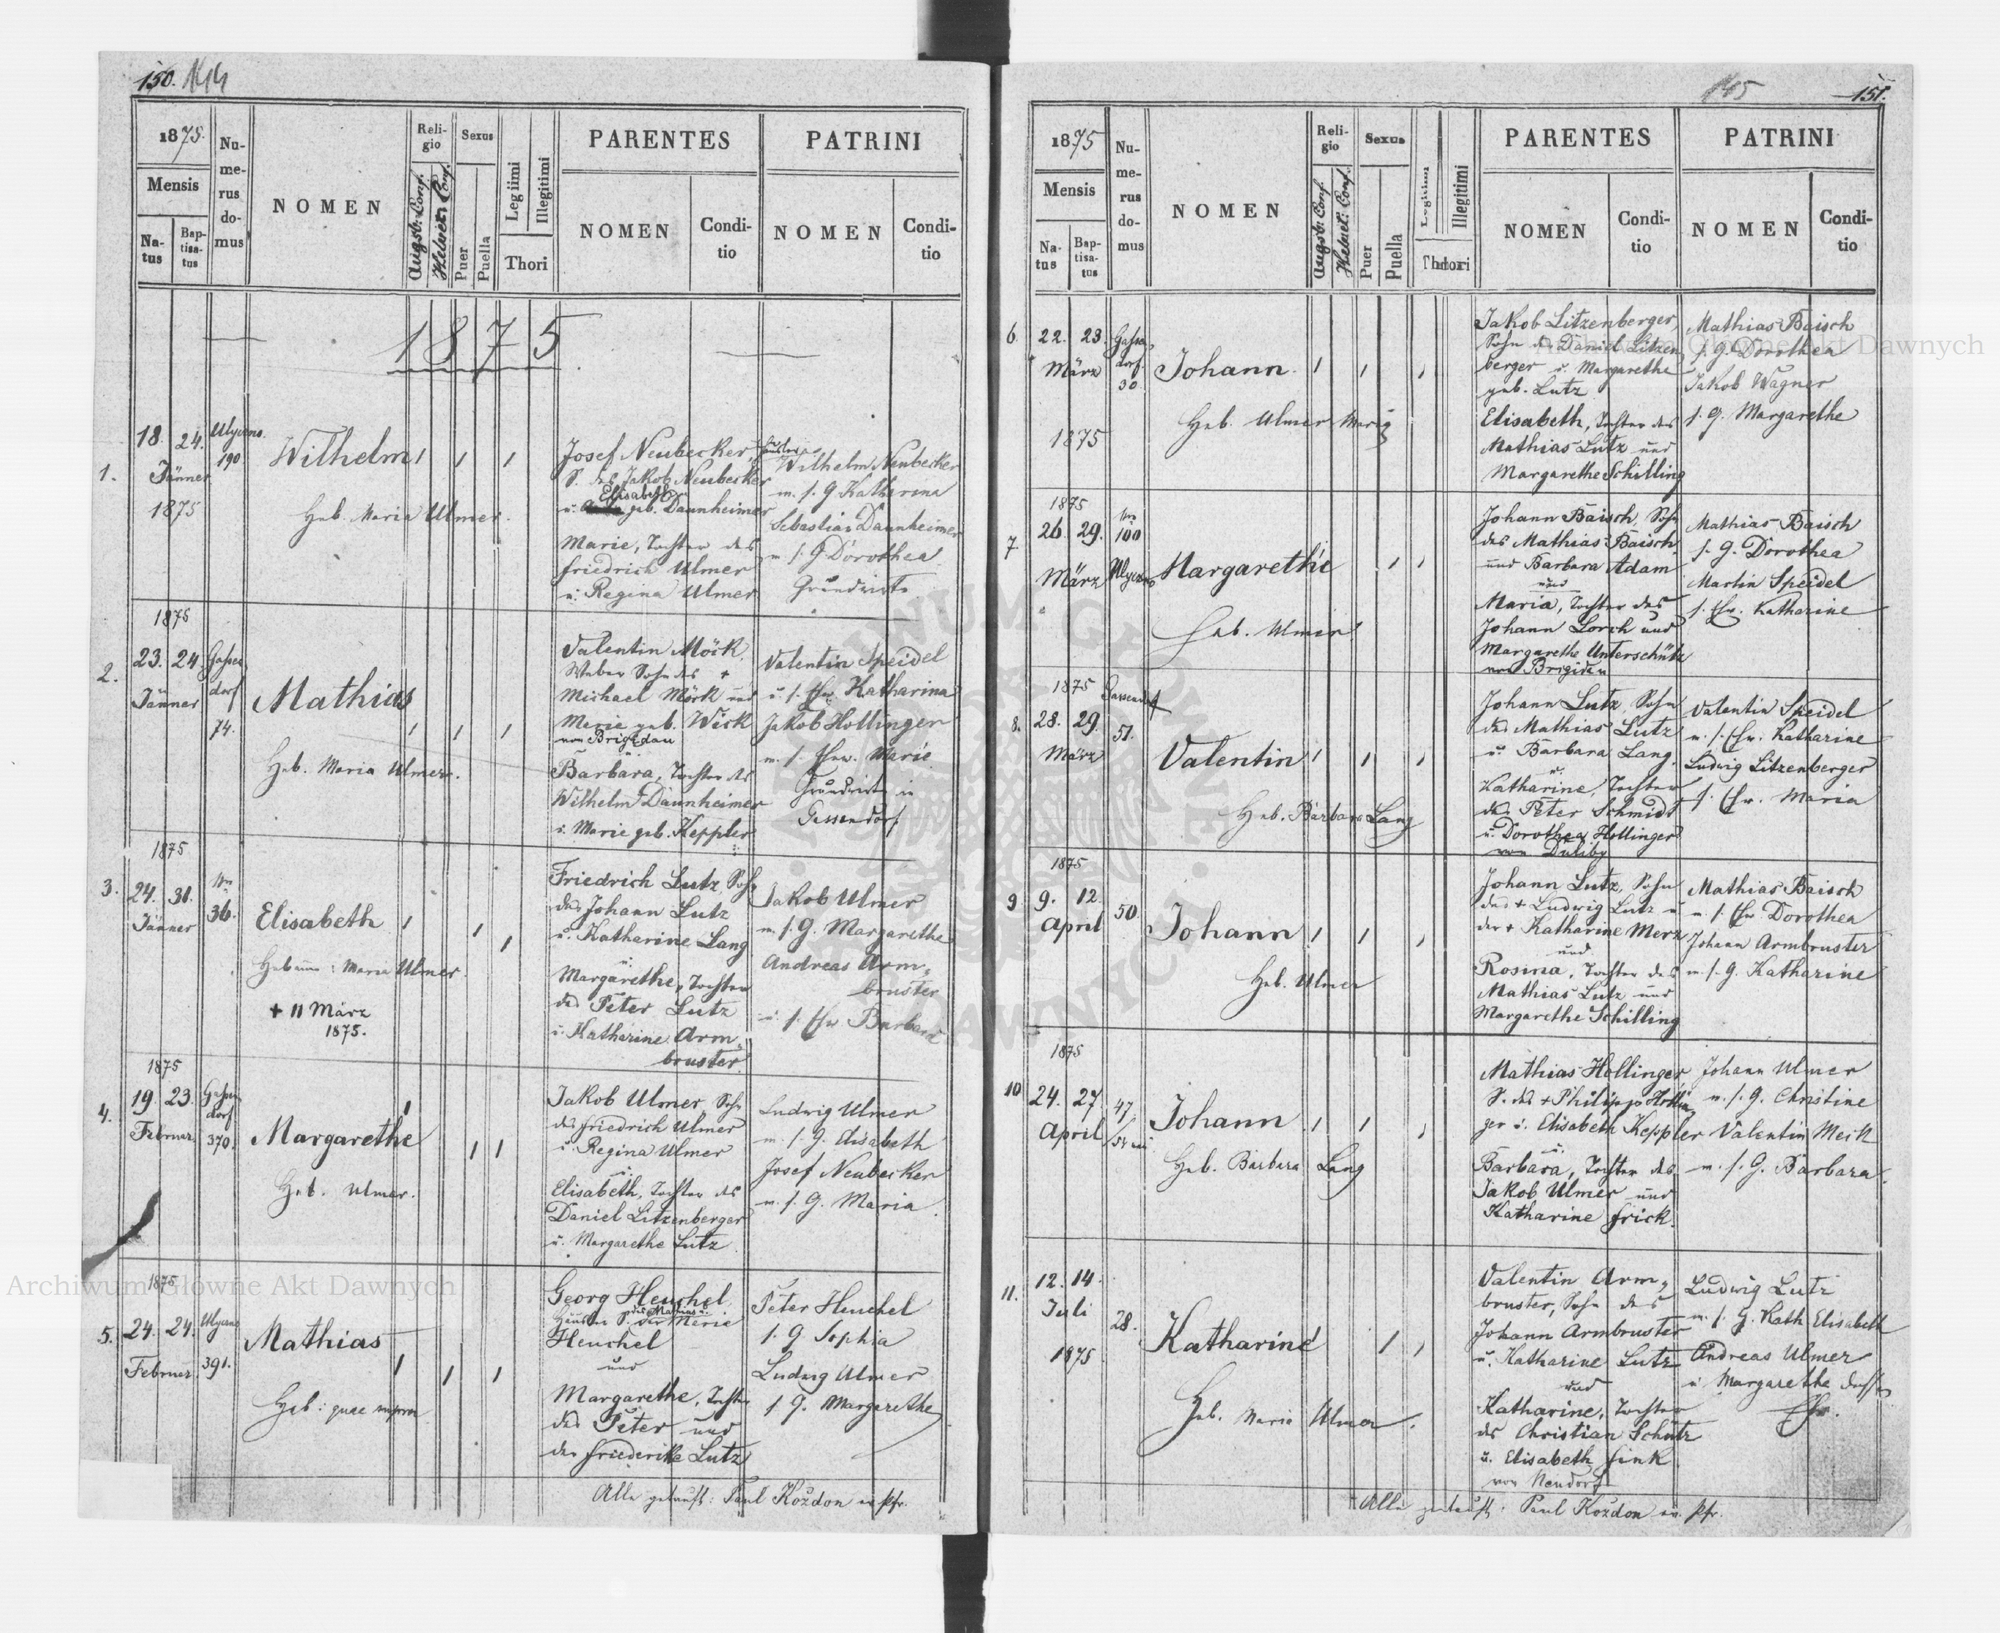 150. 144
1875.
Mensis
Na-
tus
Bap-
tisa-
tus
Nu-
me-
rus
do-
mus
NOMEN
Reli-
gio
Augsb: Conf.
Helvet: Conf.
Sexus
Puer
Puella
Legitimi
Illegitimi
Thori
PARENTES
NOMEN
Condi-
tio
PATRINI
NOMEN
Condi-
tio
1875
1.
18. 24.
Jänner
1875
190
Wilhelm
Heb. Maria Ulmer.
Josef Neubecker,
S. des Jakob Neubecker
Elisabeth
u. geb. Daunheimer
Marie, Tochter des
Friedrich Ulmer
u. Regina Ulmer
Wilhelm Neubecker
m. s. G. Katharina
Sebastian Daunheimer
m. s. G. Dorothea
Grundwirte
1875
2.
23. 24
Jänner
dorf
74.
Mathias
Heb. Maria Ulmer.
Valentin Möck,
Weber Sohn des +
Michael Möck und
Marie geb. Wick
von Brigidau
u.
Barbara, Tochter des
Wilhelm Daunheimer
u. Marie geb. Keppler
Valentin Speidel
u. s. Ehw. Katharina
Jakob Hollinger
m. s. Ehw. Marie
Grundwirte in
Gassendorf
1875
3.
24. 31.
Jänner
36.
Elisabeth
Hebamme: Maria Ulmer.
+ 11 März
1875.
Friedrich Lutz, Sohn
des Johann Lutz
u. Katharine Lang
u.
Margarethe, Tochter
des Peter Lutz
u. Katharine Arm-
bruster.
Jakob Ulmer
m. s. G. Margarethe
Andreas Arm-
bruster
u. s. Ehw Barbara
1875
4.
19. 23.
Februar
dorf
370.
Margarethe
Heb. Ulmer.
Jakob Ulmer, Sohn
des Friedrich Ulmer
u. Regina Ulmer
u.
Elisabeth, Tochter des
Daniel Litzenberger
u. Margarethe Lutz
Ludwig Ulmer
m. s. G. Elisabeth
Josef Neubecker
m. s. G. Maria.
1875
5.
24. 24.
Februar
391.
Mathias
Heb: quae supra
Georg Heuchel,
Heuchel
und
Margarethe, Tochter
des Peter und
der Friederike Lutz
Peter Heuchel
s. G. Sophia
Ludwig Ulmer
s. G. Margarethe
Alle getauft: Paul Kozdon ev. Pfr.
145 151.
1875
Mensis
Na-
tus
Bap-
tisa-
tus
Nu-
me-
rus
do-
mus
NOMEN
Reli-
gio
Augsb: Conf
Helvet: Conf.
Sexus
Puer
Puella
Legitimi
Illegitimi
Thori
PARENTES
NOMEN
Condi-
tio
PATRINI
NOMEN
Condi-
tio
6.
22. 23.
März
1875
dorf
30
Johann.
Heb. Ulmer Marie
Jakob Litzenberger,
Sohn des Daniel Litzen
berger u. Margarethe
geb. Lutz
Elisabeth, Tochter des
Mathias Lutz und
Margarethe Schilling
Mathias Baisch
s. G. Dorothea
Jakob Wagner
s. G. Margarethe
1875
7
26. 29.
März
100
Margarethe
Heb. Ulmer
Johann Baisch, Sohn
des Mathias Baisch
und Barbara Adam
und
Maria, Tochter des
Johann Lorch und
Margarethe Unterschütz
von Brigidau
Mathias Baisch
s. G. Dorothea
Martin Speidel
s. Ehw. Katharine
1875
8.
28. 29.
März
Gassendorf
51.
Valentin
Heb. Barbara Lang
Johann Lutz, Sohn
des Mathias Lutz
u. Barbara Lang.
u.
Katharine, Tochter
des Peter Schmidt
u. Dorothea Hollinger
Valentin Speidel
m. s. Ehw. Katharine
Ludwig Litzenberger
s. Ehw. Maria
1875
9
9. 12.
April
50.
Johann
Heb. Ulmer
Johann Lutz, Sohn
des + Ludwig Lutz u
der + Katharine Merz
und
Rosina, Tochter des
Mathias Lutz und
Margarethe Schilling
Mathias Baisch
m. s. Ehw Dorothea
Johann Armbruster
m. s. G. Katharine
1875
10
24. 27
April
47.
Johann
Heb. Barbara Lang
Mathias Hollinger
S. des + Philipp Hollin
ger u. Elisabeth Keppler
u.
Barbara, Tochter des
Jakob Ulmer und
Katharine Frick.
Johann Ulmer
m. s. G. Christine
Valentin Meck
m. s. G. Barbara.
11.
12. 14.
Juli
1875
28.
Katharine
Heb. Maria Ulmer.
Valentin Arm-
bruster, Sohn des
Johann Armbruster
u. Katharine Lutz
und
Katharine, Tochter
des Christian Schütz
u. Elisabeth Fink
von Neudorf
Ludwig Lutz
m. s. G. Kath Elisabeth
Andreas Ulmer
u Margarethe dessen
Ehw.
Alle getauft: Paul Kozdon ev. Pfr.
Archiwum Główne Akt Dawnych
Archiwum Główne Akt Dawnych